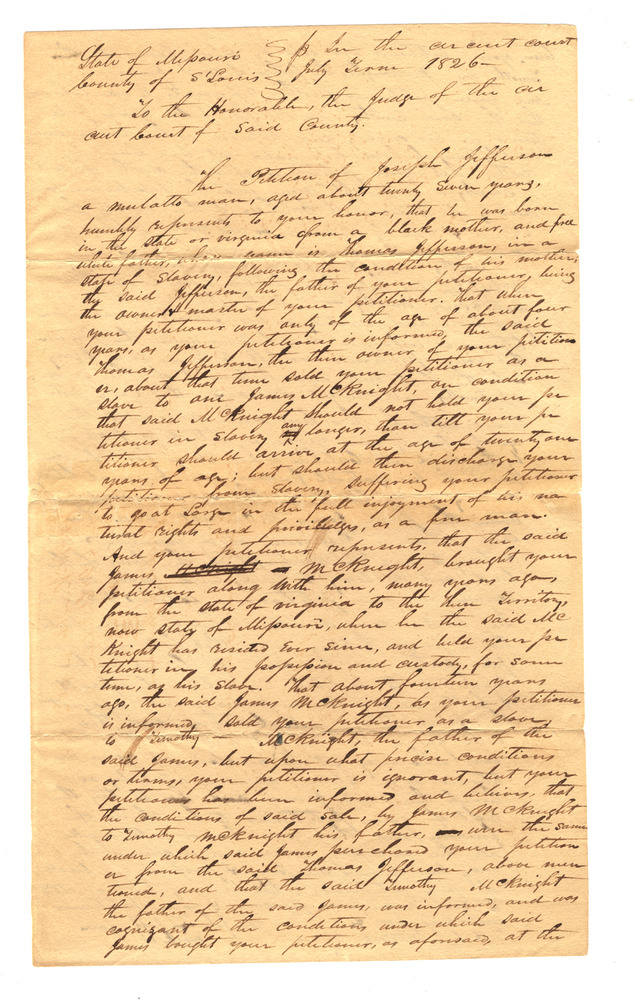 State of Missouri } In the circuit court
County of St Louis } July Term 1826—
To the Honorable, the Judge of the cir
cuit Court of Said County.
The Petition of Joseph Jefferson
a mulatto man, aged about twenty Seven years,
humbly represents to your honor, that he was born
in the State of virginia from a black mother, and free
white father, whose name is Thomas Jefferson, in a
State of Slavery, following the condition of his mother,
the said Jefferson, the father of your petitioner, being
the owner & master of your petitioner. That when
your petitioner was only of the age of about four
years, as your petitioner is informed, the said
Thomas Jefferson, the then owner of your petition
er, about that time sold your petitioner as a
slave to one James McKnight, on condition
that said McKnight should not hold your pe
titioner in Slavery any longer, than till your pe
titioner should arrive at the age of twenty one
years of age; but should then discharge your
petitioner from Slavery, suffering your petitioner
to go at Large in the full injoyment of his na
tural rights and priviledges, as a free man.
And your petitioner represents, that the said
James McKnight, brought your
petitioner along With him, many years ago,
from the state of virginia, to the then Territory,
now state of Missouri, where he the said Mc
Knight has resided Ever Since, and held your pe
titioner in his possession and custody, for some
time, as his Slave. That about fourteen years
ago, the said James McKnight, as your petitioner
is informed, sold your petitioner as a slave,
to Timothy McKnight, the father of the
said James, but upon what precise conditions
or terms, your petitioner is ignorant, but your
petitioner has been informed and believes, that
the conditions of said Sale, by James McKnight
to Timothy McKnight his father, were the same
under which said James purchased your petition
er from the said Thomas Jefferson, above men
tioned, and that the said Timothy McKnight
the father of the said James, was informed, and was
cognizant of the conditions under which said
James bought your petitioner, as aforesaid, at the